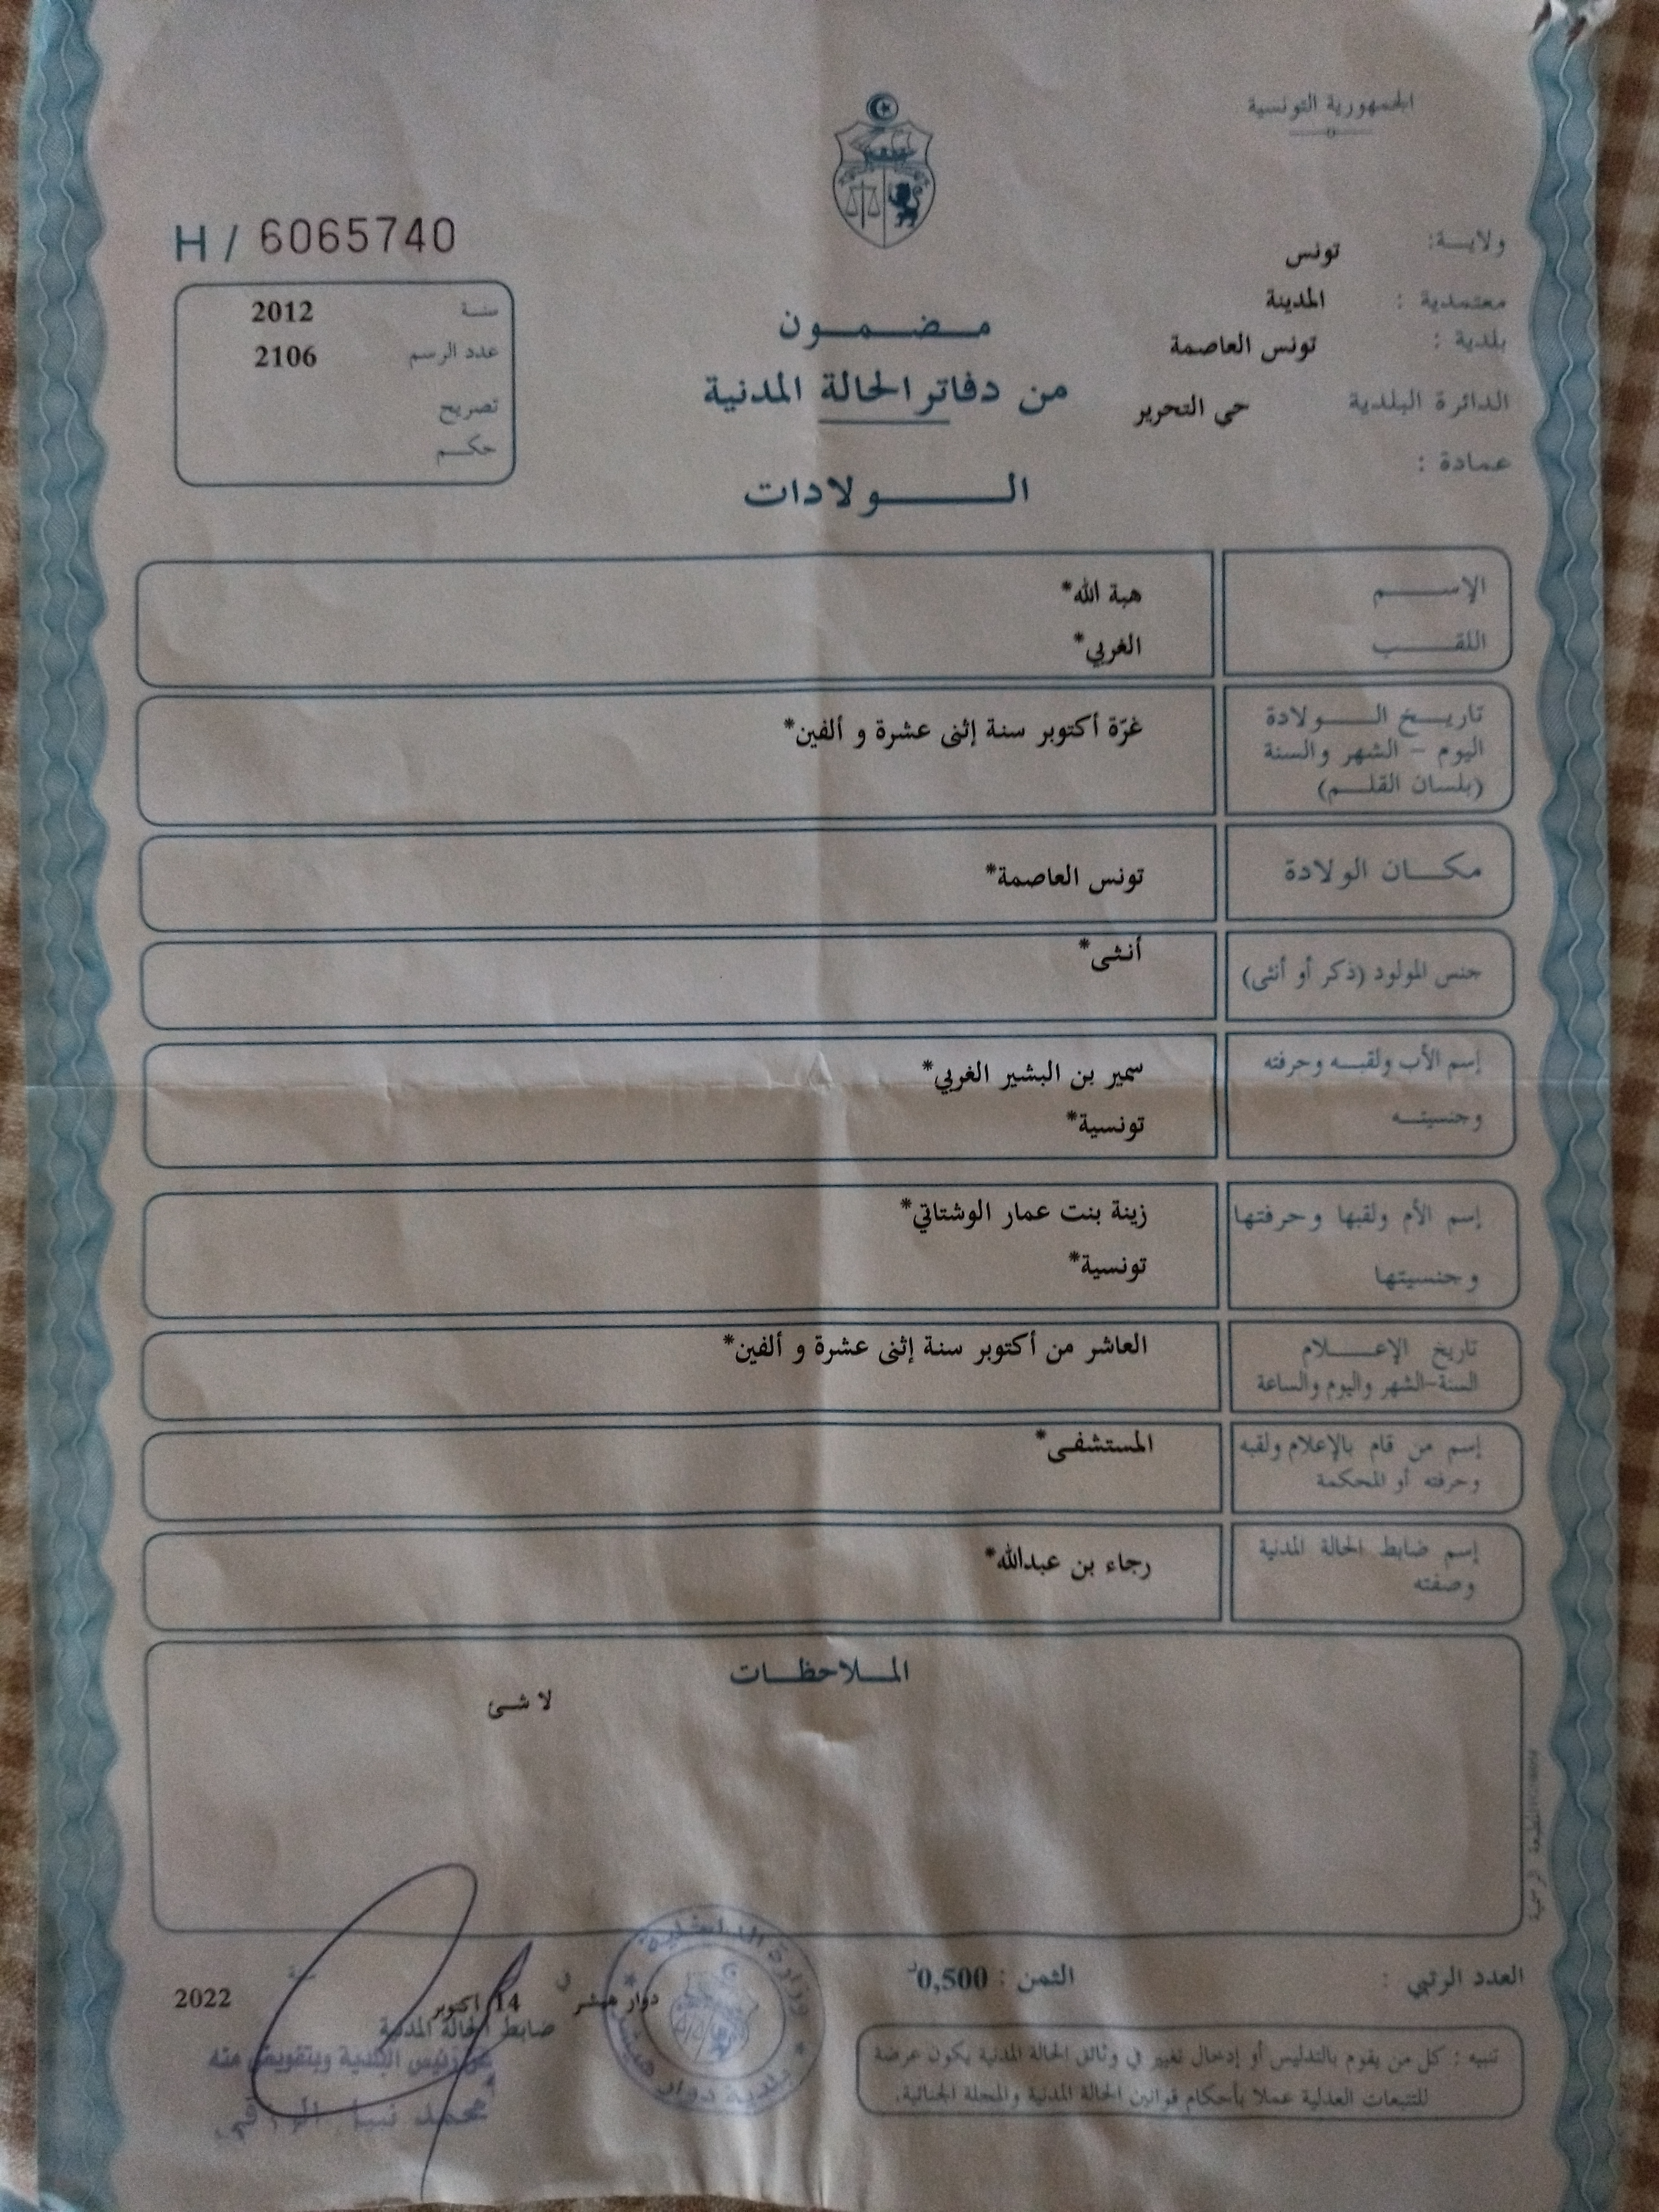 الجمهورية التونسية
ولاية: تونس
معتمدية : المدينة
بلدية : تونس العاصمة
الدائرة البلدية حي التحرير
عمادة :
H / 6065740
سنة 2012
عدد الرسم 2106
تصريح
حكم
مضمون
من دفاتر الحالة المدنية
الولادات
الإسم هبة الله*
اللقب الغربي*
تاريخ الولادة
اليوم - الشهر والسنة
(بلسان القلم)
غرّة أكتوبر سنة إثنى عشرة و ألفين*
مكان الولادة تونس العاصمة*
جنس المولود (ذكر أو أنثى) أنثى*
إسم الأب ولقبه وحرفته سمير بن البشير الغربي*
وجنسيته تونسية*
إسم الأم ولقبها وحرفتها زينة بنت عمار الوشتاتي*
وجنسيتها تونسية*
تاريخ الإعلام العاشر من أكتوبر سنة إثنى عشرة و ألفين*
السنة-الشهر واليوم والساعة
إسم من قام بالإعلام ولقبه المستشفى*
وحرفته أو المحكمة
إسم ضابط الحالة المدنية رجاء بن عبدالله*
وصفته
الملاحظات
لا شئ
المطبعة الرسمية
العدد الرتبي :
الثمن : 0,500د
دوار هيشر في 14 اكتوبر سنة 2022
ضابط الحالة المدنية
عن رئيس البلدية وبتفويض منه
محمد
وزارة الداخلية
بلدية دوار هيشر
تنبيه : كل من يقوم بالتدليس أو إدخال تغيير في وثائق الحالة المدنية يكون عرضة
للتتبعات العدلية عملا بأحكام قوانين الحالة المدنية والمجلة الجنائية.